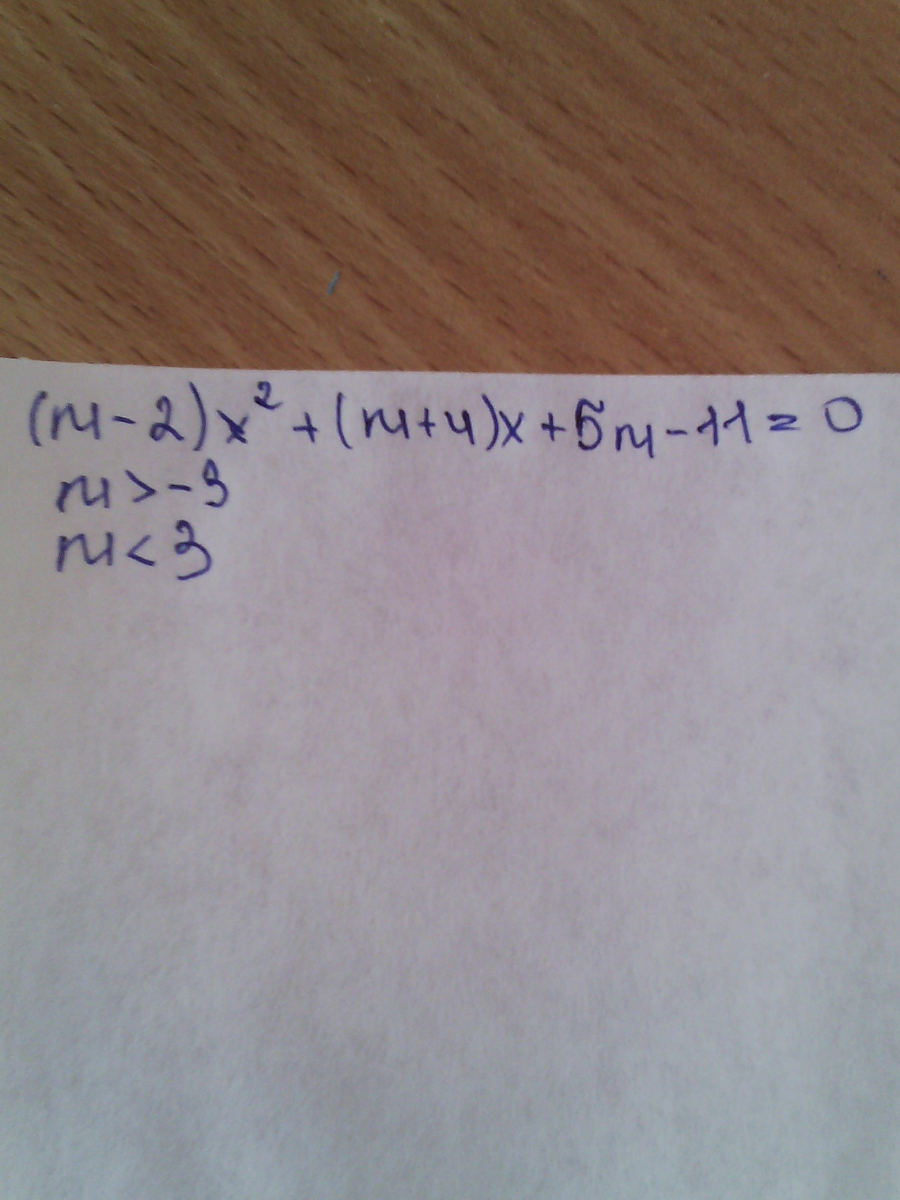 (m-2)x²+(m+4)x+5m-11=0
m>-3
m<3